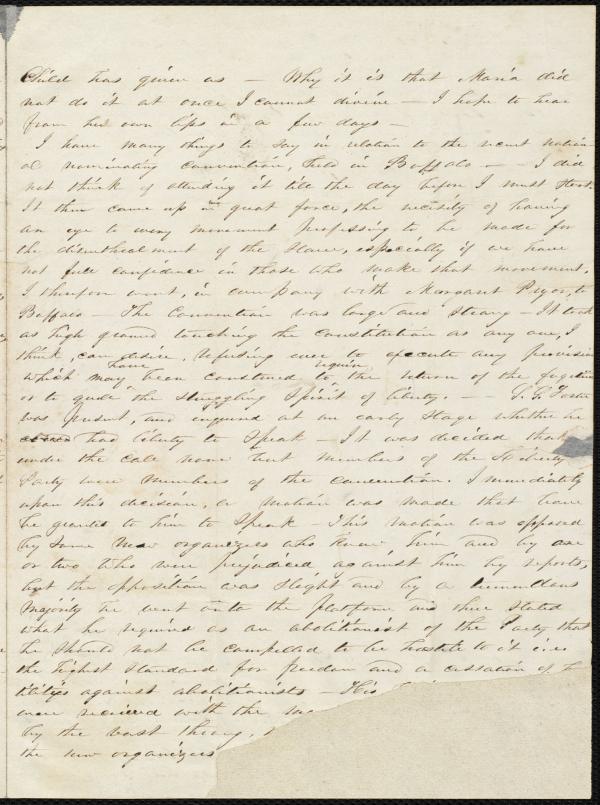 Child has given us — Why it is that Maria did
not do it at once I cannot divine — I hope to hear
from her own lips in a few days —
I have many things to say in relation to the recent nation-
al nominating convention, held in Buffalo — I did
not think of attending it till the day before I must start.
It then came up in great force, the necessity of having
an eye to every movement professing to be made for
the disenthralment of the slave, especially if we have
not full confidence in those who make that movement.
I therefore went, in company with Margaret Pryor, to
Buffalo — The Convention was large and strong — It took
as high ground touching the constitution as any one, I
think, can desire, refusing ever to execute any provision
which may have been construed to require the return of the fugitive
or to quell the struggling spirit of liberty. — S. S. Foster
was present, and enquired at an early stage whether he
had liberty to speak — It was decided that
under the call none but members of the Liberty
Party were members of the convention. Immediately
upon this decision, a motion was made that leave
be granted to him to speak — This motion was opposed
by some new organizers who knew him and by one
or two who were prejudiced against him by reports,
but the opposition was slight and by a tremendous
majority he went onto the platform and there stated
what he required as an abolitionist of the Party that
he should not be compelled to be hostile to it i.e.
the highest standard for freedom and a cessation of
tilities against abolitionists — His
were received with the
by the vast throng,
the new organizers